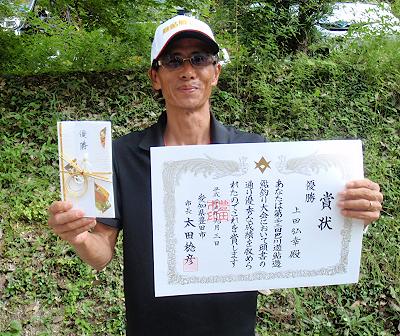 優勝
賞状
優勝
上田弘幸殿
あなたは第三回巴川遊鮎造
鬼釣り大会において頭書の
通り優秀な成績を収めら
れたのでこれを賞します
平成
月三日
愛知県豊田市
市長 太田稔彦